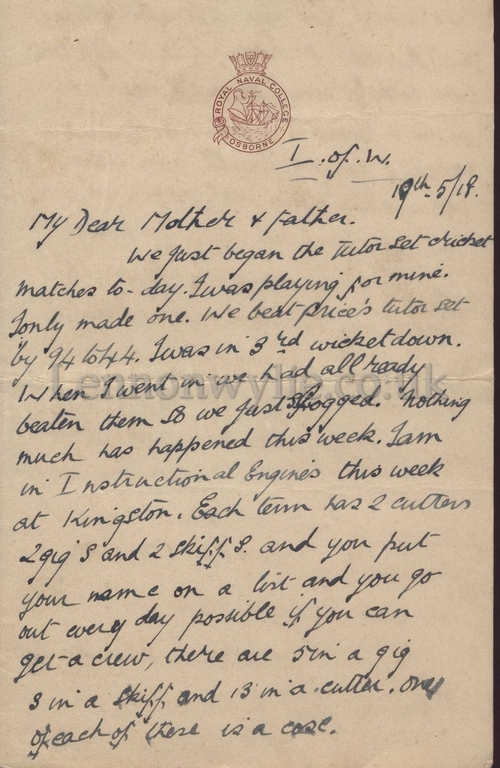 ROYAL NAVAL COLLEGE
OSBORNE
I. of. W.
19th. 5/18.
My Dear Mother & Father.
We just began the Tutor Set cricket
matches to-day. I was playing for mine.
I only made one. We beat price's tutor set
by 94 to 44. I was in 3rd wicket down.
When I went in we had allready
beaten them so we just slogged. Nothing
much has happened this week. I am
in Instructional Engines this week
at Kingston. Each term has 2 cutters
2 gigs and 2 skiffs. and you put
your name on a list and you go
out every day possible if you can
get a crew, there are 5 in a gig
3 in a skiff, and 13 in a cutter. One
of each of these is a cox.
Lennonwylie.co.uk